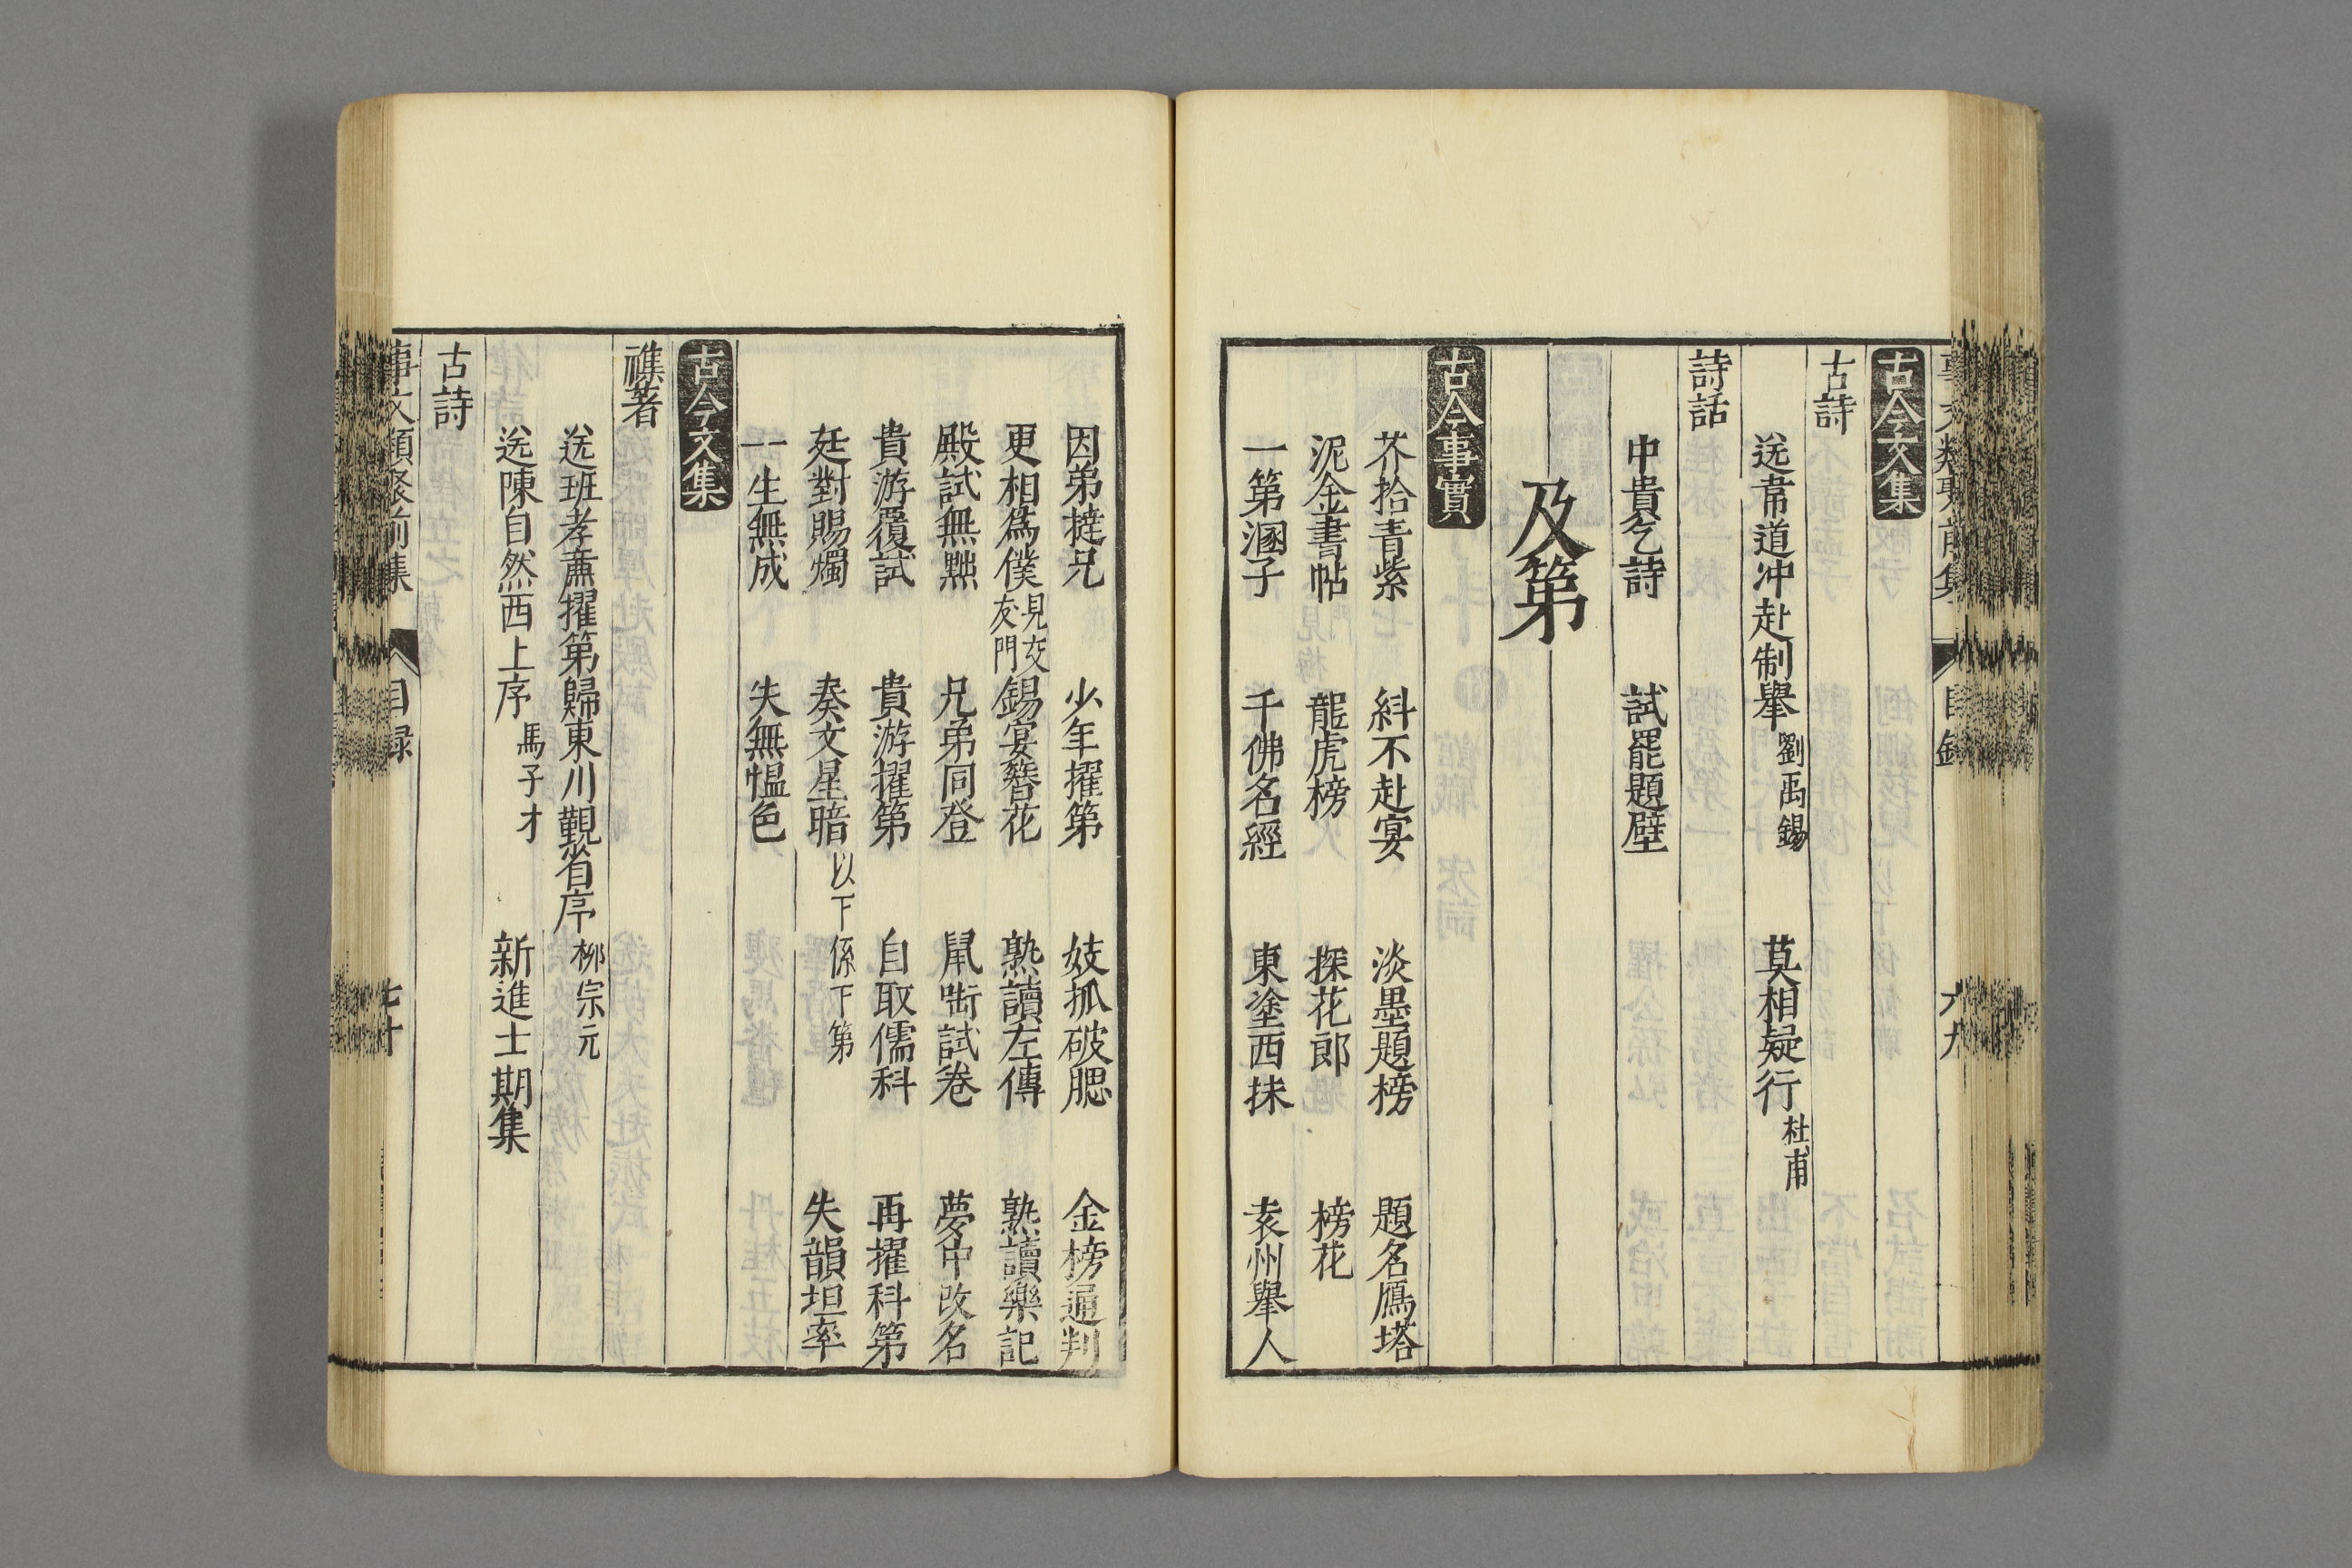 事文類聚前集 目録 六九
古今文集
古詩
送韋道冲赴制舉 劉禹錫 莫相疑行 杜甫
詩話
中貴乞詩 試罷題壁 
及第
古今事實
芥拾青紫 糾不赴宴 淡墨題榜 題名鴈塔
泥金書帖 龍虎榜 探花郎 榜花
一第溷子 千佛名經 東塗西抹 袁州舉人
因弟撻兄 少年擢第 妓抓破腮 金榜通判
更相為僕 見交友門 錫宴簪花 熟讀左傳 熟讀樂記
殿試無黜 兄弟同登 鼠嚙試卷 夢中改名
貴游覆試 貴游擢第 自取儒科 再擢科第
廷對賜燭 奏文星暗 以下係下第 失韻坦率
一生無成 失無愠色
古今文集
襍著
送班孝廉擢第歸東川覲省序 柳宗元
送陳自然西上序 馬子才 新進士期集
古詩
事文類聚前集 目録 七十